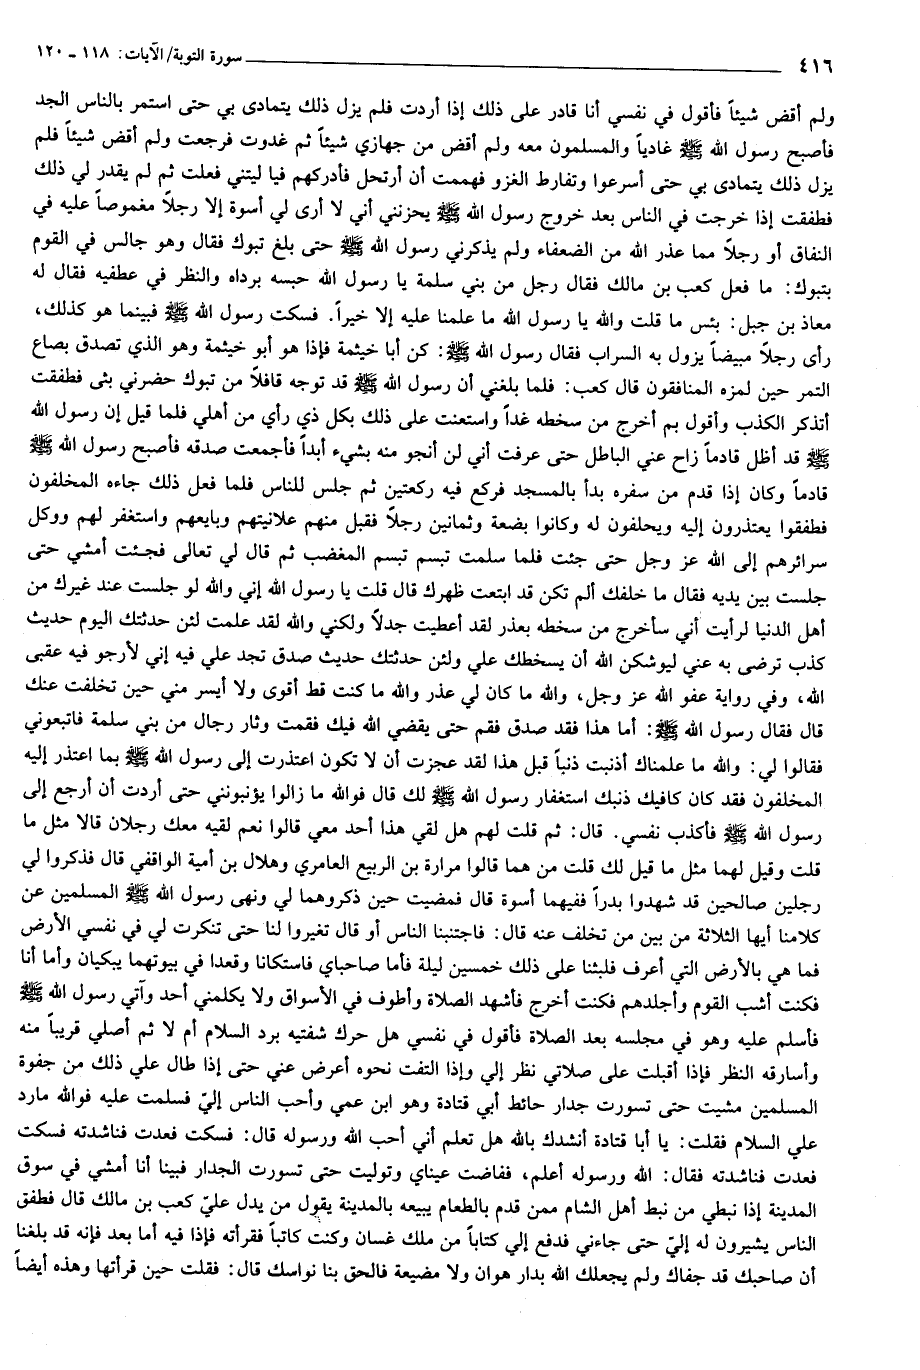 ٤١٦ سورة التوبة/ الآيات: ١١٨ ـ ١٢٠
ولم أقض شيئاً فأقول في نفسي أنا قادر على ذلك إذا أردت فلم يزل ذلك يتمادى بي حتى استمر بالناس الجد
فأصبح رسول الله ﷺ غادياً والمسلمون معه ولم أقض من جهازي شيئاً ثم غدوت فرجعت ولم أقض شيئاً فلم
يزل ذلك يتمادى بي حتى أسرعوا وتفارط الغزو فهممت أن أرتحل فأدركهم فيا ليتني فعلت ثم لم يقدر لي ذلك
فطفقت إذا خرجت في الناس بعد خروج رسول الله ﷺ يحزنني أني لا أرى لي أسوة إلا رجلاً مغموصاً عليه في
النفاق أو رجلاً مما عذر الله من الضعفاء ولم يذكرني رسول الله ﷺ حتى بلغ تبوك فقال وهو جالس في القوم
بتبوك: ما فعل كعب بن مالك فقال رجل من بني سلمة يا رسول الله حبسه برداه والنظر في عطفيه فقال له
معاذ بن جبل: بئس ما قلت والله يا رسول الله ما علمنا عليه إلا خيراً. فسكت رسول الله ﷺ فبينما هو كذلك،
رأى رجلاً مبيضاً يزول به السراب فقال رسول الله ﷺ: كن أبا خيثمة فإذا هو أبو خيثمة وهو الذي تصدق بصاع
التمر حين لمزه المنافقون قال كعب: فلما بلغني أن رسول الله ﷺ قد توجه قافلاً من تبوك حضرني بثى فطفقت
أتذكر الكذب وأقول بم أخرج من سخطه غداً واستعنت على ذلك بكل ذي رأي من أهلي فلما قيل إن رسول الله
ﷺ قد أظل قادماً زاح عني الباطل حتى عرفت أني لن أنجو منه بشيء أبداً فأجمعت صدقه فأصبح رسول الله ﷺ
قادماً وكان إذا قدم من سفره بدأ بالمسجد فركع فيه ركعتين ثم جلس للناس فلما فعل ذلك جاءه المخلفون
فطفقوا يعتذرون إليه ويحلفون له وكانوا بضعة وثمانين رجلاً فقبل منهم علانيتهم وبايعهم واستغفر لهم ووكل
سرائرهم إلى الله عز وجل حتى جئت فلما سلمت تبسم تبسم المغضب ثم قال لي تعالى فجئت أمشي حتى
جلست بين يديه فقال ما خلفك ألم تكن قد ابتعت ظهرك قال قلت يا رسول الله إني والله لو جلست عند غيرك من
أهل الدنيا لرأيت أني سأخرج من سخطه بعذر لقد أعطيت جدلاً ولكني والله لقد علمت لئن حدثتك اليوم حديث
كذب ترضى به عني ليوشكن الله أن يسخطك علي ولئن حدثتك حديث صدق تجد علي فيه إني لأرجو فيه عقبى
الله، وفي رواية عفو الله عز وجل، والله ما كان لي عذر والله ما كنت قط أقوى ولا أيسر مني حين تخلفت عنك
قال فقال رسول الله ﷺ: أما هذا فقد صدق فقم حتى يقضي الله فيك فقمت وثار رجال من بني سلمة فاتبعوني
فقالوا لي: والله ما علمناك أذنبت ذنباً قبل هذا لقد عجزت أن لا تكون اعتذرت إلى رسول الله ﷺ بما اعتذر إليه
المخلفون فقد كان كافيك ذنبك استغفار رسول الله ﷺ لك قال فوالله ما زالوا يؤنبونني حتى أردت أن أرجع إلى
رسول الله ﷺ فأكذب نفسي. قال: ثم قلت لهم هل لقي هذا أحد معي قالوا نعم لقيه معك رجلان قالا مثل ما
قلت وقيل لهما مثل ما قيل لك قلت من هما قالوا مرارة بن الربيع العامري وهلال بن أمية الواقفي قال فذكروا لي
رجلين صالحين قد شهدوا بدراً ففيهما أسوة قال فمضيت حين ذكروهما لي ونهى رسول الله ﷺ المسلمين عن
كلامنا أيها الثلاثة من بين من تخلف عنه قال: فاجتنبنا الناس أو قال تغيروا لنا حتى تنكرت لي في نفسي الأرض
فما هي بالأرض التي أعرف فلبثنا على ذلك خمسين ليلة فأما صاحباي فاستكانا وقعدا في بيوتهما يبكيان وأما أنا
فكنت أشب القوم وأجلدهم فكنت أخرج فأشهد الصلاة وأطوف في الأسواق ولا يكلمني أحد وآتي رسول الله ﷺ
فأسلم عليه وهو في مجلسه بعد الصلاة فأقول في نفسي هل حرك شفتيه برد السلام أم لا ثم أصلي قريباً منه
وأسارقه النظر فإذا أقبلت على صلاتي نظر إلي وإذا التفت نحوه أعرض عني حتى إذا طال علي ذلك من جفوة
المسلمين مشيت حتى تسورت جدار حائط أبي قتادة وهو ابن عمي وأحب الناس إليّ فسلمت عليه فوالله مارد
علي السلام فقلت: يا أبا قتادة أنشدك بالله هل تعلم أني أحب الله ورسوله قال: فسكت فعدت فناشدته فسكت
فعدت فناشدته فقال: الله ورسوله أعلم، ففاضت عيناي وتوليت حتى تسورت الجدار فبينا أنا أمشي في سوق
المدينة إذا نبطي من نبط أهل الشام ممن قدم بالطعام يبيعه بالمدينة يقول من يدل عليّ كعب بن مالك قال فطفق
الناس يشيرون له إليّ حتى جاءني فدفع إلي كتاباً من ملك غسان وكنت كاتباً فقرأته فإذا فيه أما بعد فإنه قد بلغنا
أن صاحبك قد جفاك ولم يجعلك الله بدار هوان ولا مضيعة فالحق بنا نواسك قال: فقلت حين قرأتها وهذه أيضاً